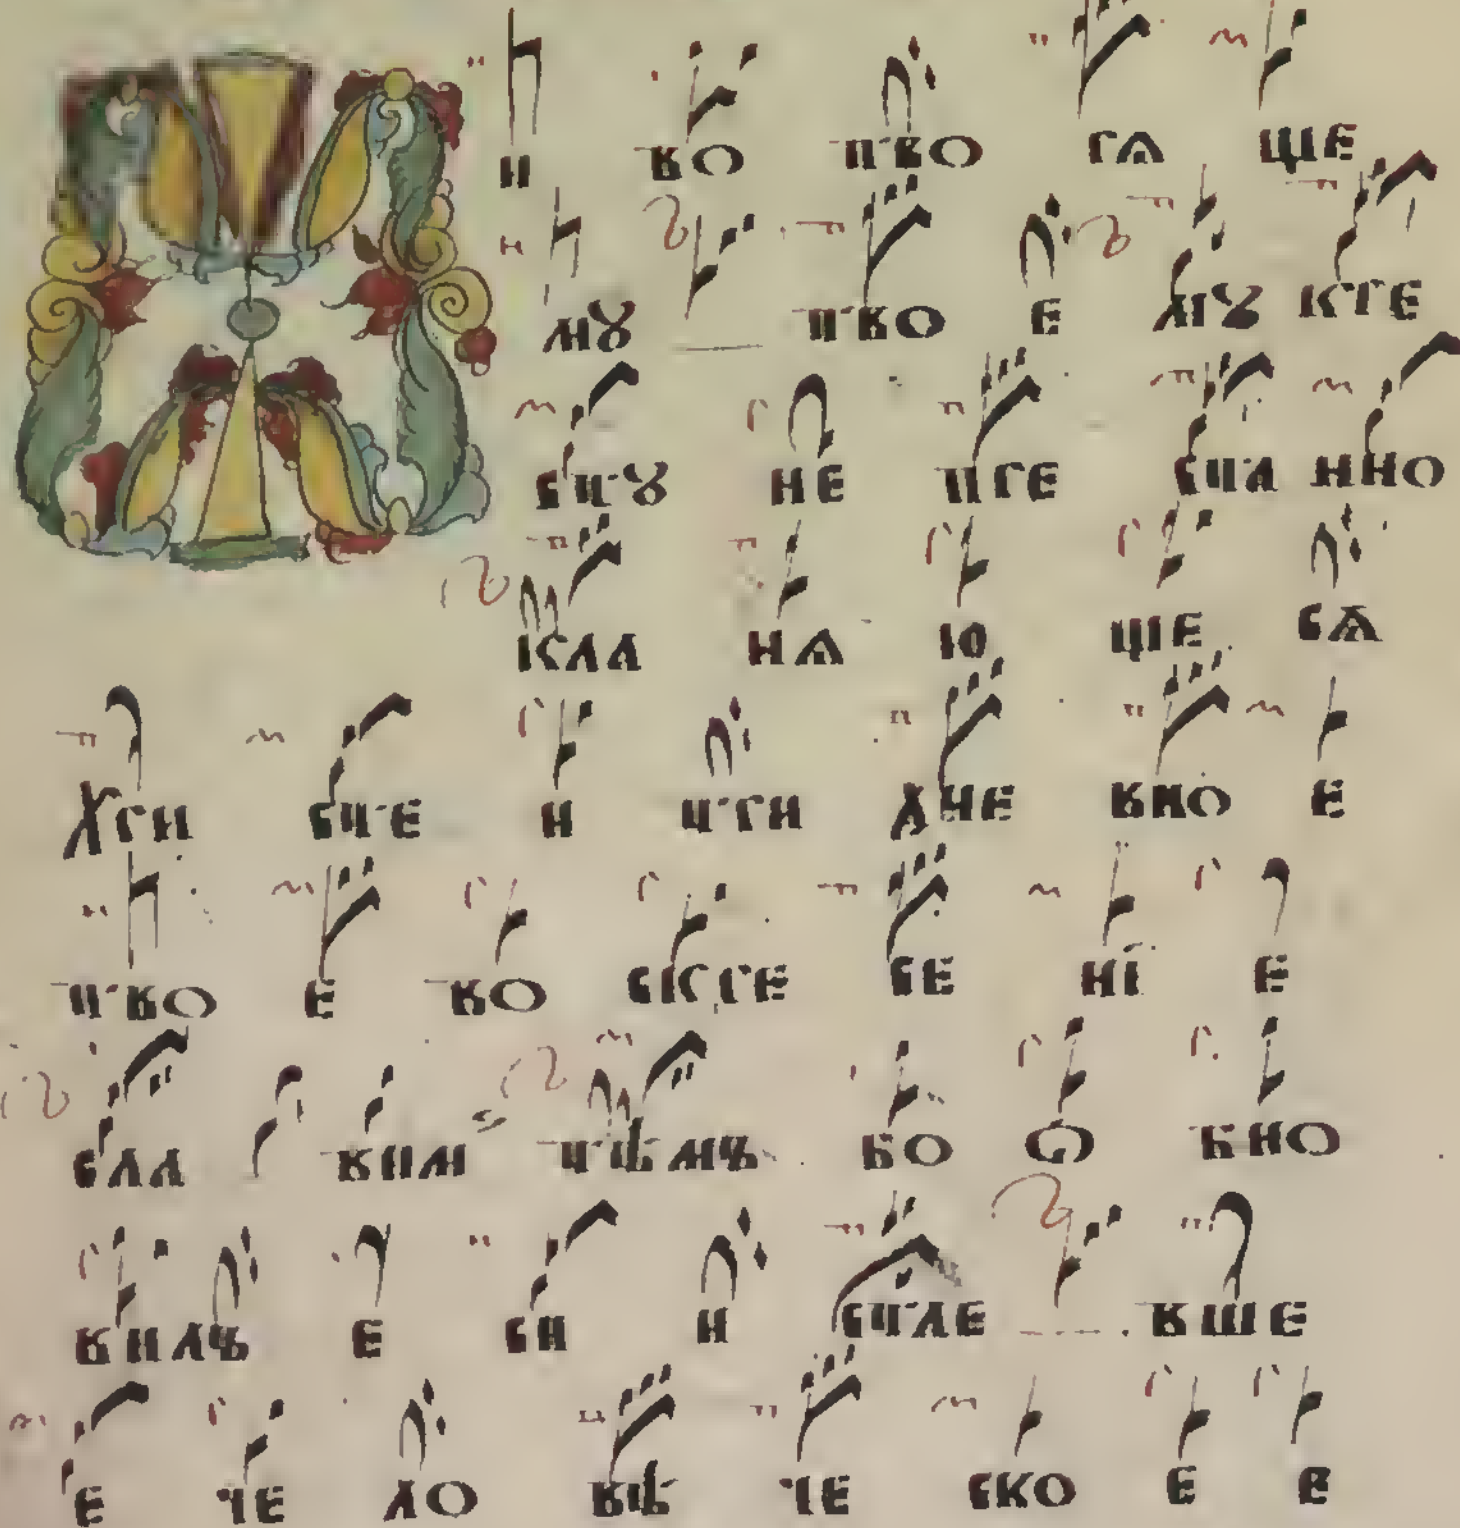 Ж И ВО ТВО РѦ ЩЕ
МꙊ ТВО Е МꙊ КРЕ
СТꙊ НЕ ПРЕ СТА ННО
КЛА НѦ Ю ЩЕ СѦ
ХРИ СТЕ И ТРИ ДНЕ ВНО Е
ТВО Е ВО СКРЕ СЕ НІ Е
СЛА ВИМ ТѢМЪ БО Ѡ БНО
ВИЛЪ Е СИ И СТЛЕ ВШЕ
Е ЧЕ ЛО ВѢ ЧЕ СКО Е Е